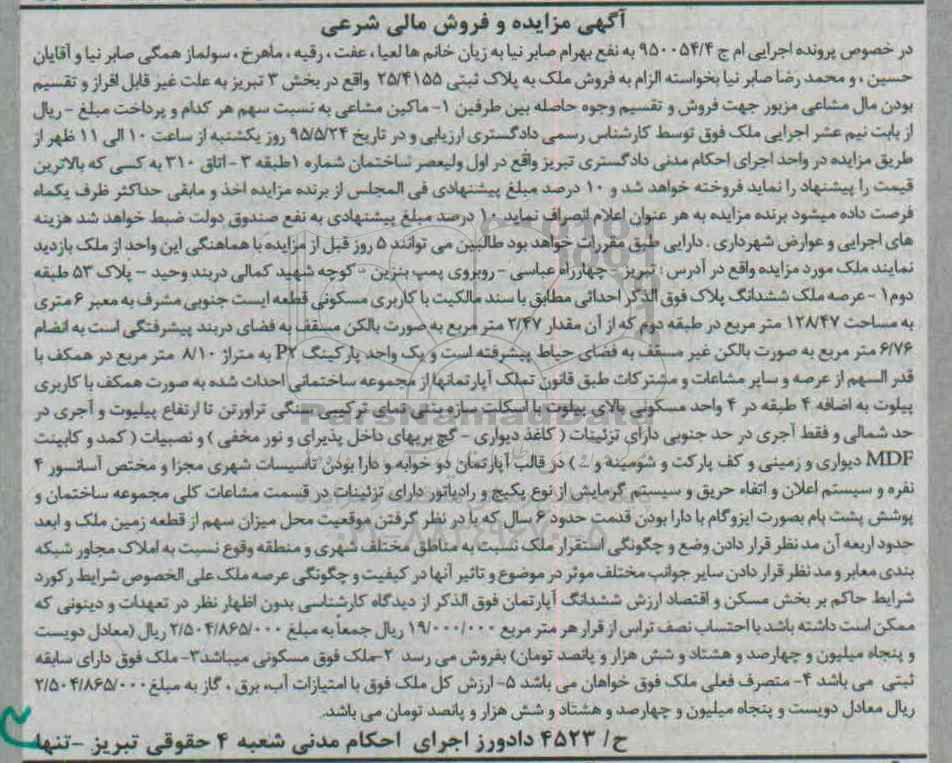 آگهی مزایده و فروش مالی شرعی
در خصوص پرونده اجرایی ام ج ۹۵۰۰۵۴/۴ به نفع بهرام صابر نیا به زیان خانم ها لعیا ، عفت ، رقیه ، ماهرخ ، سولماز همگی صابر نیا و آقایان
حسین ، و محمد رضا صابر نیا بخواسته الزام به فروش ملک به پلاک ثبتی ۲۵/۴۱۵۵ واقع در بخش ۳ تبریز به علت غیر قابل افراز و تقسیم
بودن مال مشاعی مزبور جهت فروش و تقسیم وجوه حاصله بین طرفین ۱- ماکین مشاعی به نسبت سهم هر کدام و پرداخت مبلغ - ریال
از بابت نیم عشر اجرایی ملک فوق توسط کارشناس رسمی دادگستری ارزیابی و در تاریخ ۹۵/۵/۲۴ روز یکشنبه از ساعت ۱۰ الی ۱۱ ظهر از
طریق مزایده در واحد اجرای احکام مدنی دادگستری تبریز واقع در اول ولیعصر ساختمان شماره ۱طبقه ۳ - اتاق ۳۱۰ به کسی که بالاترین
قیمت را پیشنهاد را نماید فروخته خواهد شد و ۱۰ درصد مبلغ پیشنهادی فی المجلس از برنده مزایده اخذ و مابقی حداکثر ظرف یکماه
فرصت داده میشود برنده مزایده به هر عنوان اعلام انصراف نماید ۱۰ درصد مبلغ پیشنهادی به نفع صندوق دولت ضبط خواهد شد هزینه
های اجرایی و عوارض شهرداری . دارایی طبق مقررات خواهد بود طالبین می توانند ۵ روز قبل از مزایده با هماهنگی این واحد از ملک بازدید
نمایند ملک مورد مزایده واقع در آدرس : تبریز - چهارراه عباسی - روبروی پمپ بنزین - کوچه شهید کمالی دربند وحید - پلاک ۵۳ طبقه
دوم ۱- عرصه ملک ششدانگ پلاک فوق الذکر احداثی مطابق با سند مالکیت با کاربری مسکونی قطعه ایست جنوبی مشرف به معبر ۶ متری
به مساحت ۱۲۸/۴۷ متر مربع در طبقه دوم که از آن مقدار ۲/۴۷ متر مربع به صورت بالکن مسقف به فضای دربند پیشرفتگی است به انضام
۶/۷۶ متر مربع به صورت بالکن غیر مسقف به فضای حیاط پیشرفته است و یک واحد پارکینگ P۲ به متراژ ۸/۱۰ متر مربع در همکف با
قدر السهم از عرصه و سایر مشاعات و مشترکات طبق قانون تملک آپارتمانها از مجموعه ساختمانی احداث شده به صورت همکف با کاربری
پیلوت به اضافه ۴ طبقه در ۴ واحد مسکونی بالای پیلوت با اسکلت سازه بتنی نمای ترکیبی سنگی تراورتن تا ارتفاع پیلیوت و آجری در
حد شمالی و فقط آجری در حد جنوبی دارای تزئینات ( کاغذ دیواری - گچ بریهای داخل پذیرای و نور مخفی ) و نصبیات ( کمد و کابینت
MDF دیواری و زمینی و کف پارکت و شومینه و ) در قالب آپارتمان دو خوابه و دارا بودن تاسیسات شهری مجزا و مختص آسانسور ۴
نفره و سیستم اعلان و اتفاء حریق و سیستم گرمایش از نوع پکیج و رادیاتور دارای تزئینات در قسمت مشاعات کلی مجموعه ساختمان و
پوشش پشت بام بصورت ایزوگام با دارا بودن قدمت حدود ۶ سال که با در نظر گرفتن موقعیت محل میزان سهم از قطعه زمین ملک و ابعد
حدود اربعه آن مد نظر قرار دادن وضع و چگونگی استقرار ملک نسبت به مناطق مختلف شهری و منطقه وقوع نسبت به املاک مجاور شبکه
بندی معابر و مد نظر قرار دادن سایر جوانب مختلف موثر در موضوع و تاثیر آنها در کیفیت و چگونگی عرصه ملک علی الخصوص شرایط رکورد
شرایط حاکم بر بخش مسکن و اقتصاد ارزش ششدانگ آپارتمان فوق الذکر از دیدگاه کارشناسی بدون اظهار نظر در تعهدات و دینونی که
ممکن است داشته باشد با احتساب نصف تراس از قرار هر متر مربع ۱۹/۰۰۰/۰۰۰ ریال جمعاً به مبلغ ۲/۵۰۴/۸۶۵/۰۰۰ ریال (معادل دویست
و پنجاه میلیون و چهارصد و هشتاد و شش هزار و پانصد تومان) بفروش می رسد ۲-ملک فوق مسکونی میباشد ۳- ملک فوق دارای سابقه
ثبتی می باشد ۴- متصرف فعلی ملک فوق خواهان می باشد ۵- ارزش کل ملک فوق با امتیازات آب، برق ، گاز به مبلغ ۲/۵۰۴/۸۶۵/۰۰۰
ریال معادل دویست و پنجاه میلیون و چهارصد و هشتاد و شش هزار و پانصد تومان می باشد.
ح/ ۴۵۲۳ دادورز اجرای احکام مدنی شعبه ۴ حقوقی تبریز -تنها
ParsNamadData